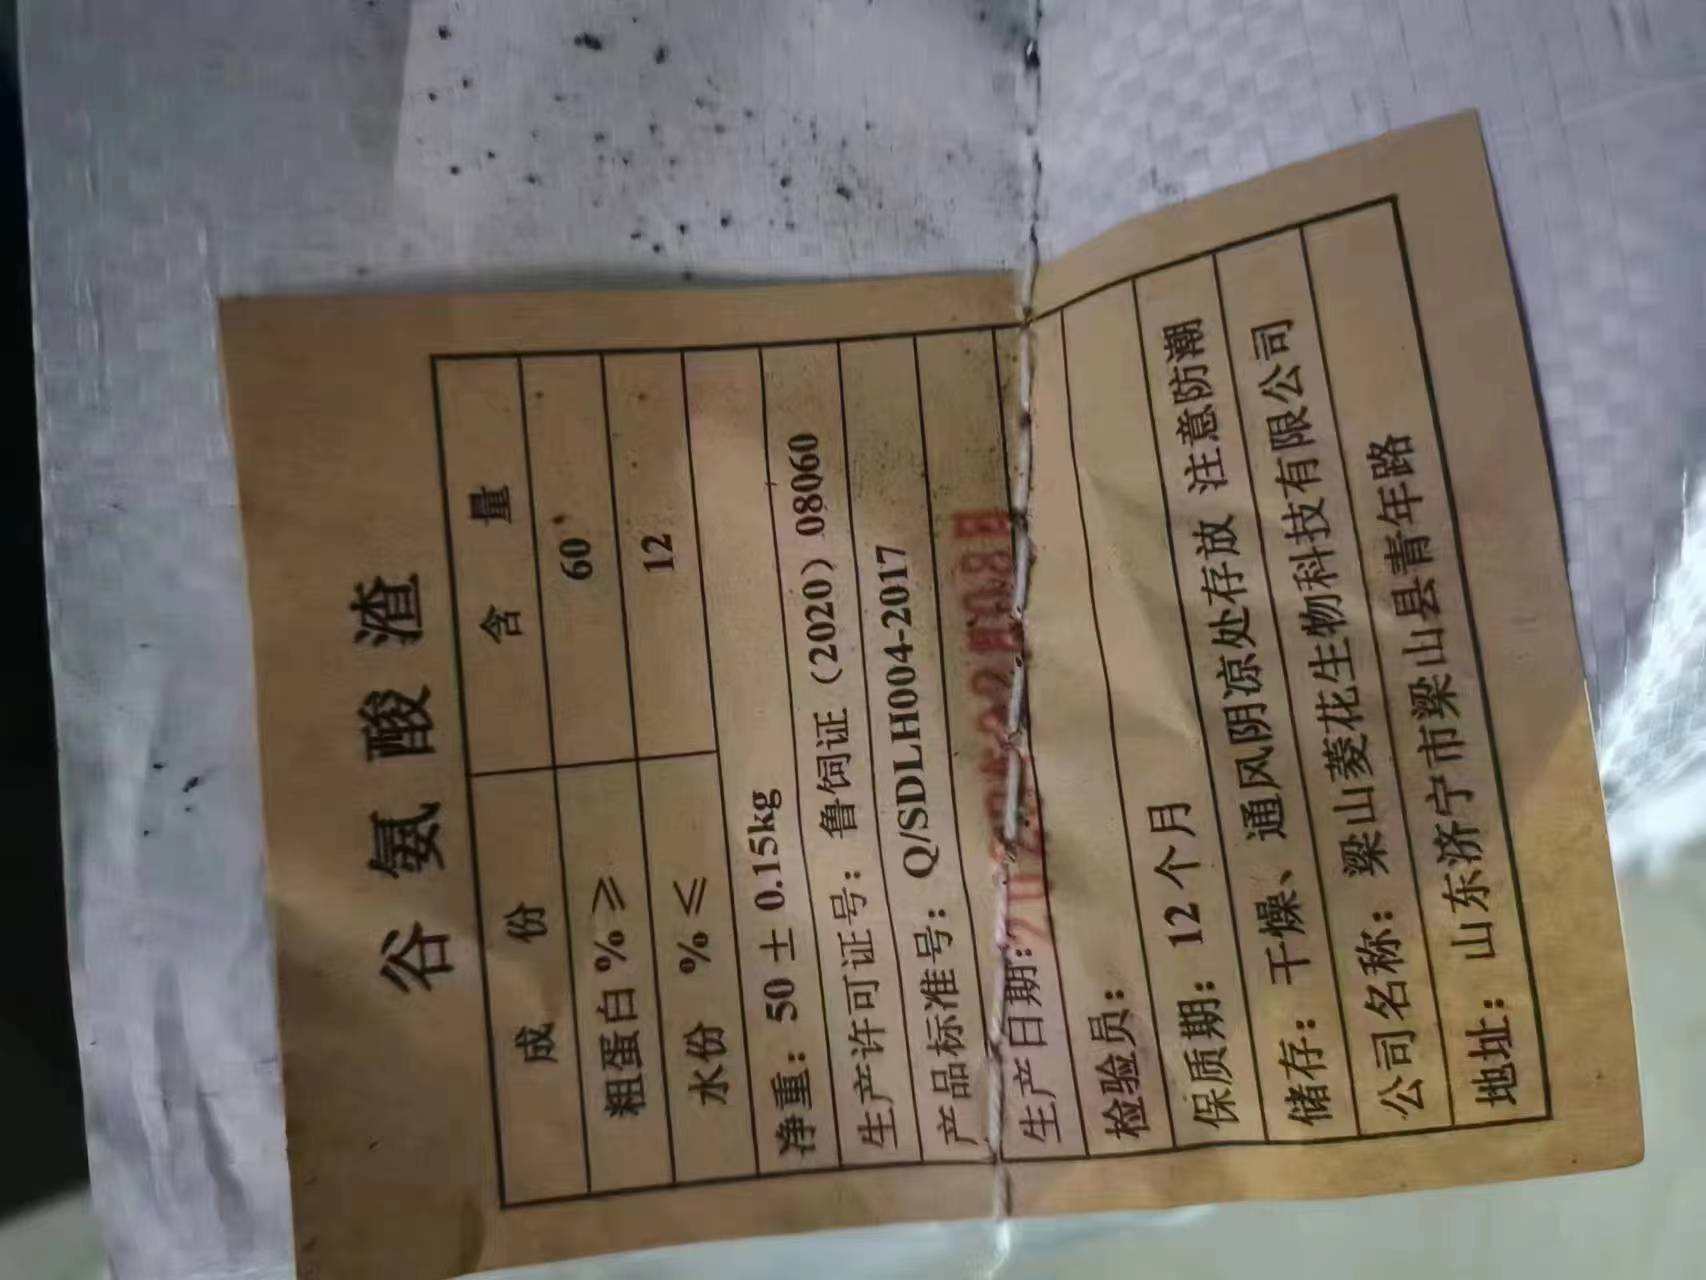 谷氨酸渣
成份 含量
粗蛋白%≥ 60
水份 %≤ 12
净重：50±0.15kg
生产许可证号：鲁饲证（2020）08060
产品标准号：Q/SDLH004-2017
生产日期:
检验员：
保质期：12个月
储存：干燥、通风阴凉处存放 注意防潮
公司名称：梁山菱花生物科技有限公司
地址：山东济宁市梁山县青年路